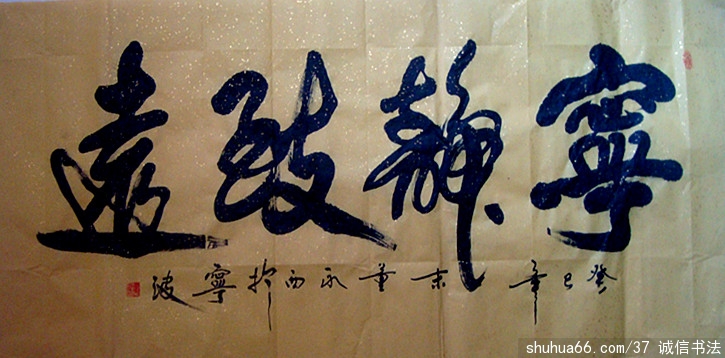 寧靜致遠
癸巳年末董永西於寧波
shuhua66.com/37 诚信书法